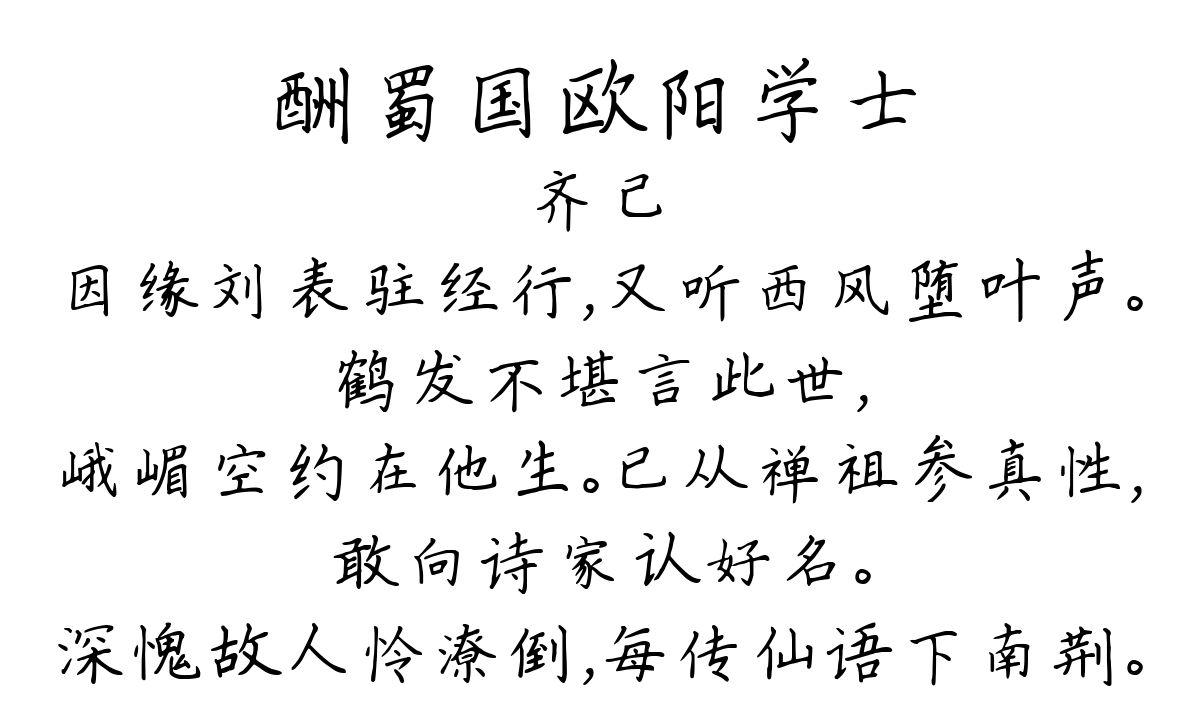 酬蜀国欧阳学士
齐己
因缘刘表驻经行,又听西风堕叶声。
鹤发不堪言此世,
峨嵋空约在他生。已从禅祖参真性,
敢向诗家认好名。
深愧故人怜潦倒,每传仙语下南荆。